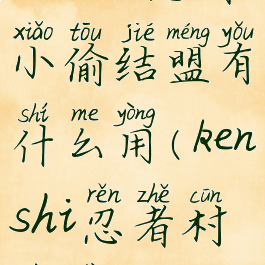 xiǎo tōu jié méng yǒu
小偷结盟有
shí me yòng
什么用(ken
rěn zhě cūn
shi忍者村